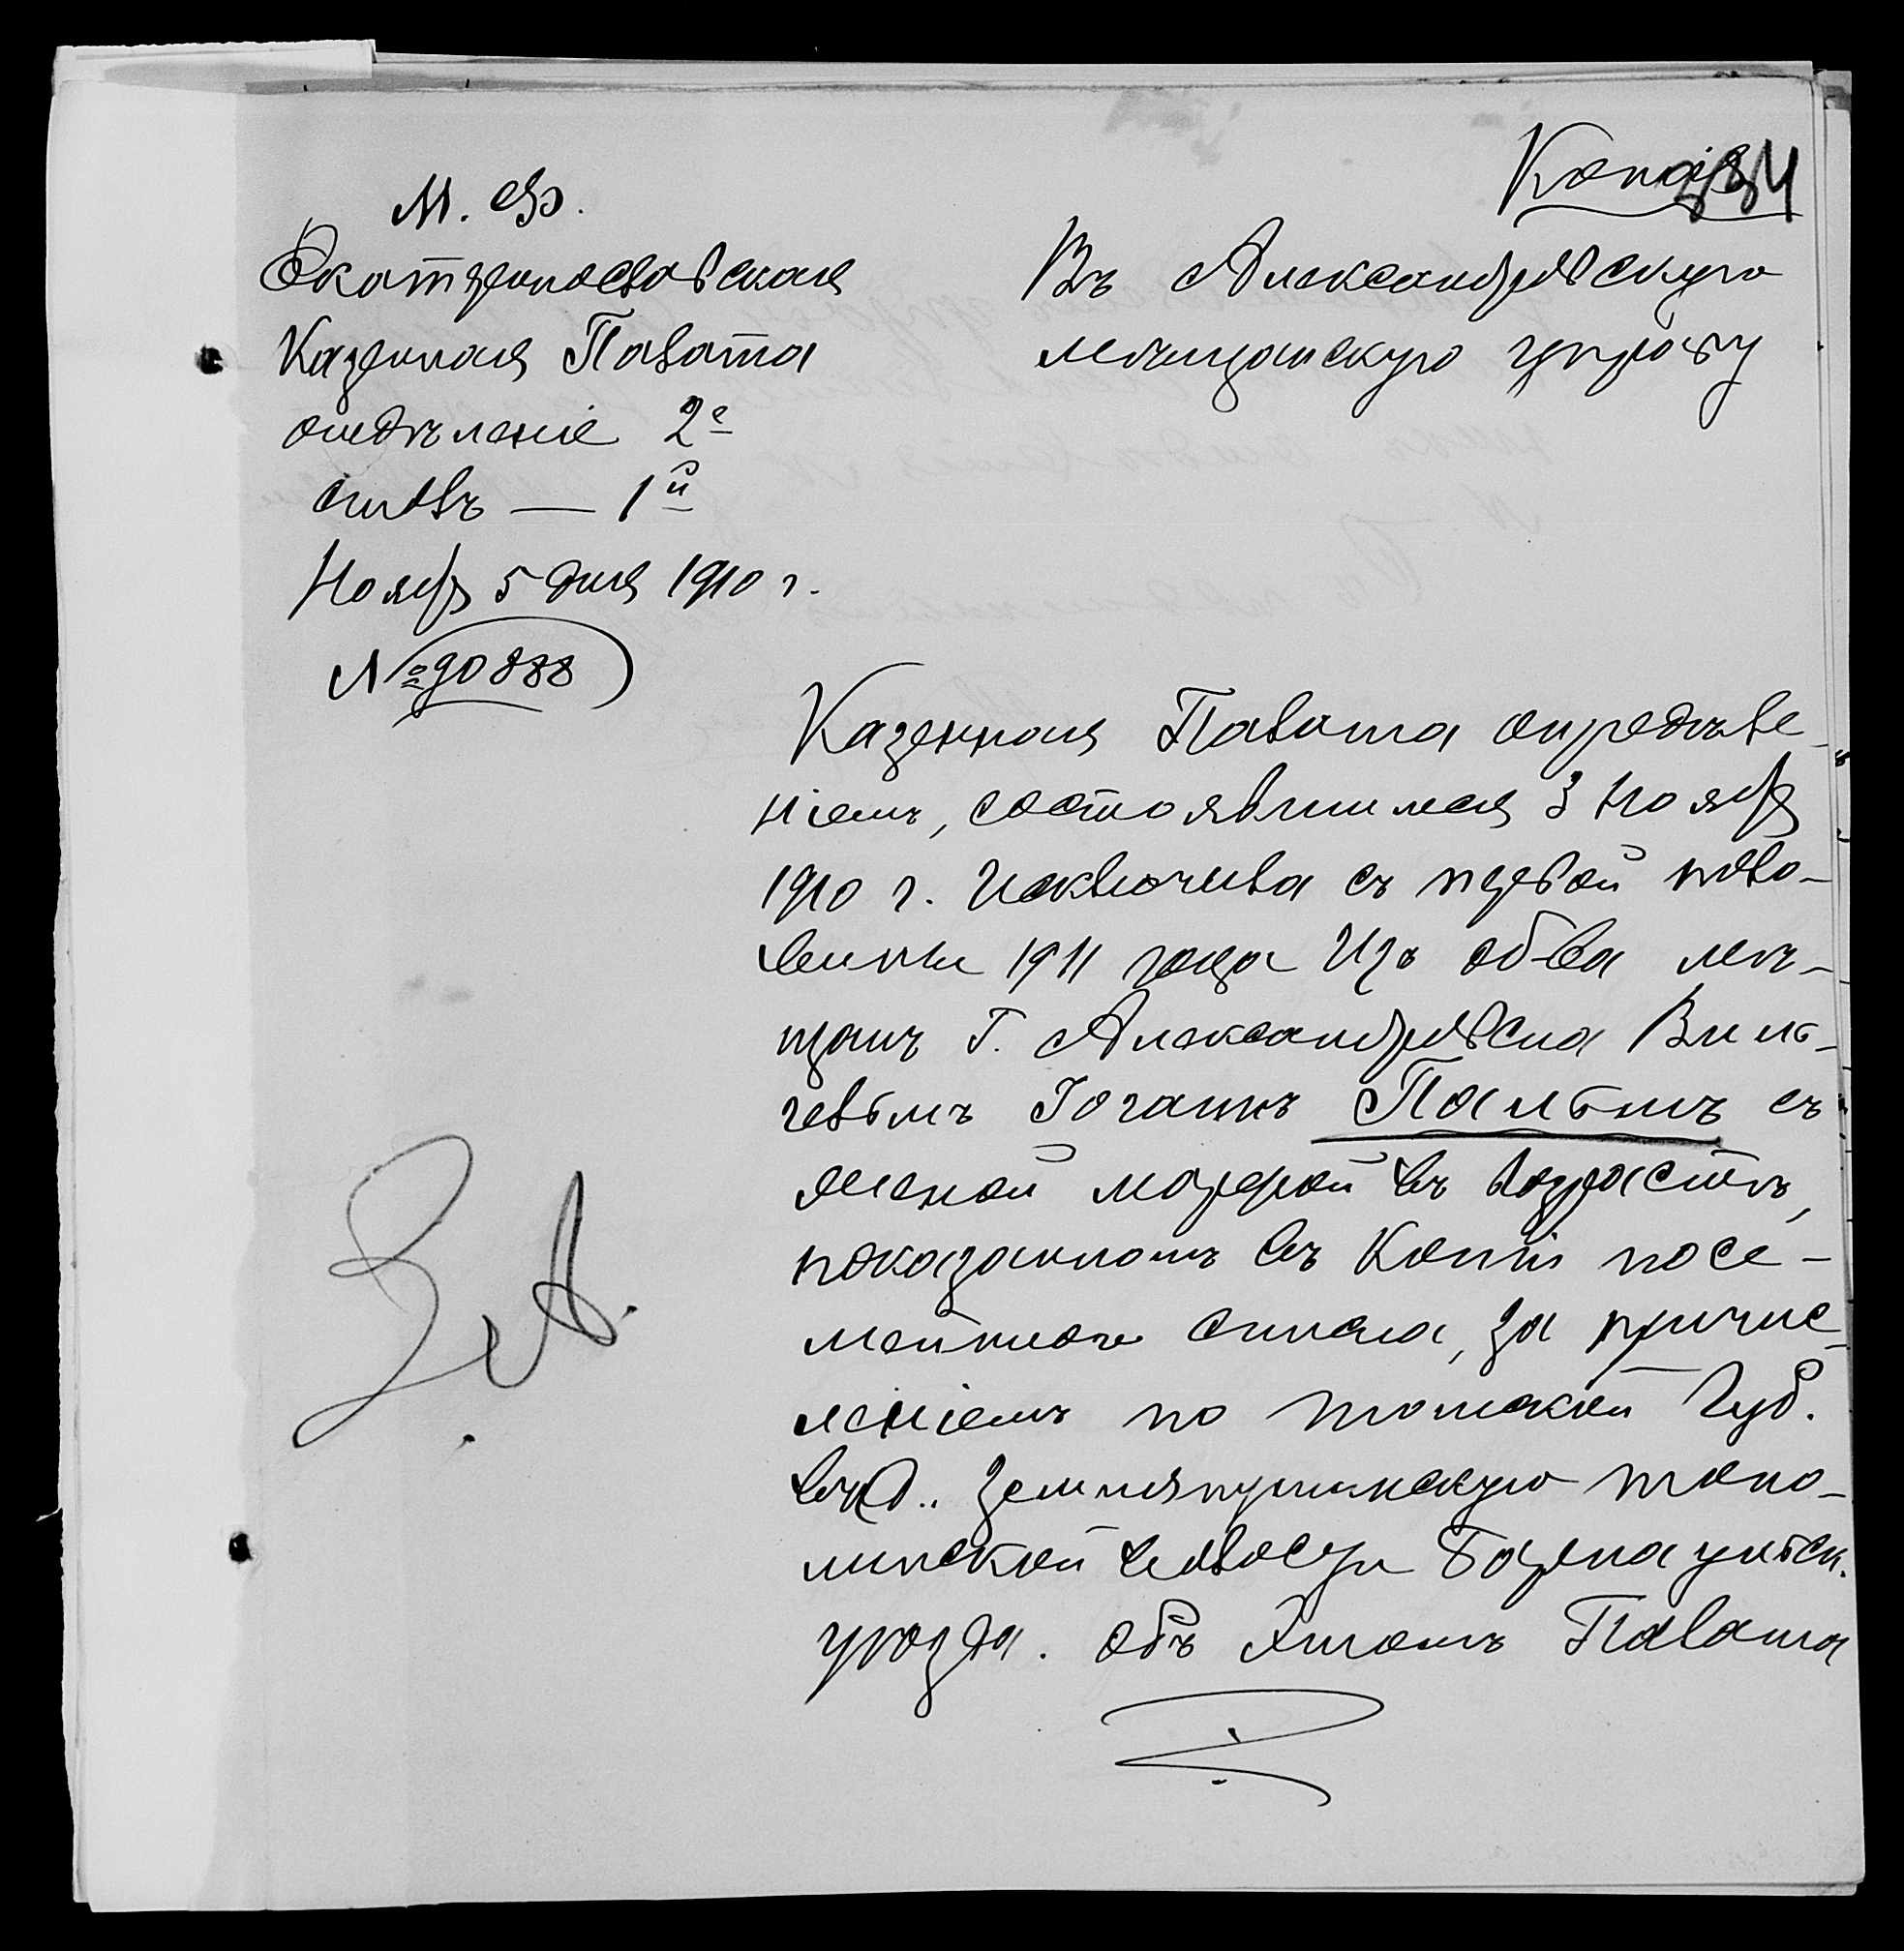 Копія
334
М. Ф.
Екатеринославская
Казенная Палата
отдѣленіе 2е
столъ — 1й
Ноябр 5 дня 1910 г.
№ 90888
Въ Александровскую
мѣщанскую управу
Казенная Палата опредѣле-
ніемъ, состоявшимся 3 Ноябр
1910 г. исключила съ первой поло-
вины 1911 года изъ об-ва мѣ-
щанъ г. Александровска Виль-
гельмъ Іоганнъ съ
женой Марфой въ возрастѣ,
показанномъ въ копіи посе-
мейного списка, за причис-
леніемъ по Томской Губ.
въ д. волости Барнаульск.
уѣзда. Объ этомъ Палата